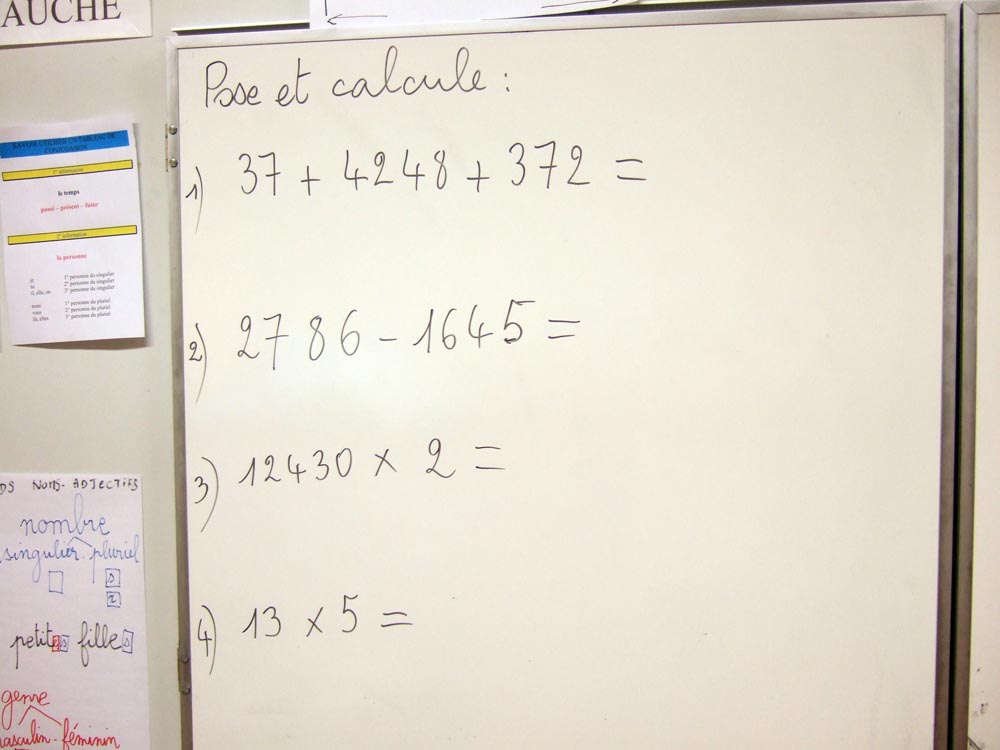 AUCHE
SAVOIR UTILISER UN TABLEAU DE
CONJUGAISON
1° information
le temps
passé – présent – futur
2° information
la personne
je 1° personne du singulier
tu 2° personne du singulier
il, elle, on 3° personne du singulier
nous 1° personne du pluriel
vous 2° personne du pluriel
ils, elles 3° personne du pluriel
DS NOMS - ADJECTIFS
nombre
singulier - pluriel
s
x
petites filles
genre
masculin - féminin
Pose et calcule :
1) 37 + 4248 + 372 =
2) 2786 - 1645 =
3) 12430 x 2 =
4) 13 x 5 =